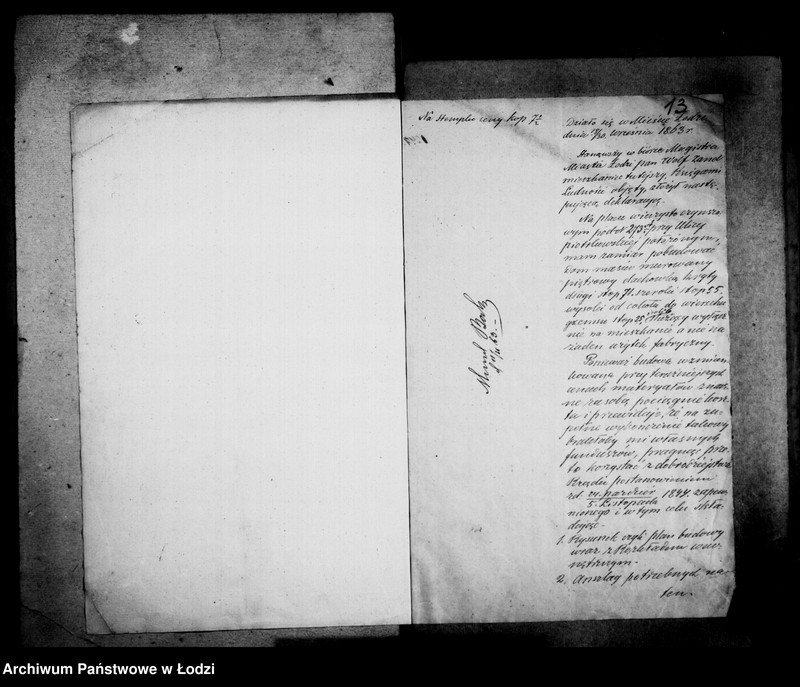 13
Na stemplu ceny kop 7½
Działo się w Mieście Łodzi
dnia 18/30 Września 1863 r.
Stanąwszy w biurze Magistra
Miasta Łodzi pan Wolf
mieszkaniec tutejszy, Księgami
Ludności objęty, złożył nastę
pującą deklaracyą.
Na placu wieczysto czynszo
wym pod № przy Ulicy
piotrkowskiej położonym,
mam zamiar pobudować
Dom masiv murowany
piętrowy dachówką kryty
długi stop 71. szeroki stop 55.
wysoki od cokołu do wierzchu
gzemsu stop 25, służący wyłącz
nie na mieszkania a nie na
żaden użytek fabryczny.
Ponieważ budowa wzmian
kowana przy teraźniejszych
cenach materyałów znacz
ne za sobą pociągnie kosz
ta i przewiduję, że na zu-
pełne wykończenie takowej
brakłoby mi własnych
funduszów, pragnąc prze
to korzystać z dobrodziejstwa
Rządu postanowieniem
zd. 24 paździer 1844 zapew
5. Listopada
nionego i w tym celu skła
dając:
1. Rysunek czyli plan budowy
wraz z Rozkładem wew-
nętrznym.
2. Anszlag potrzebnych na
ten.
Archiwum Państwowe w Łodzi